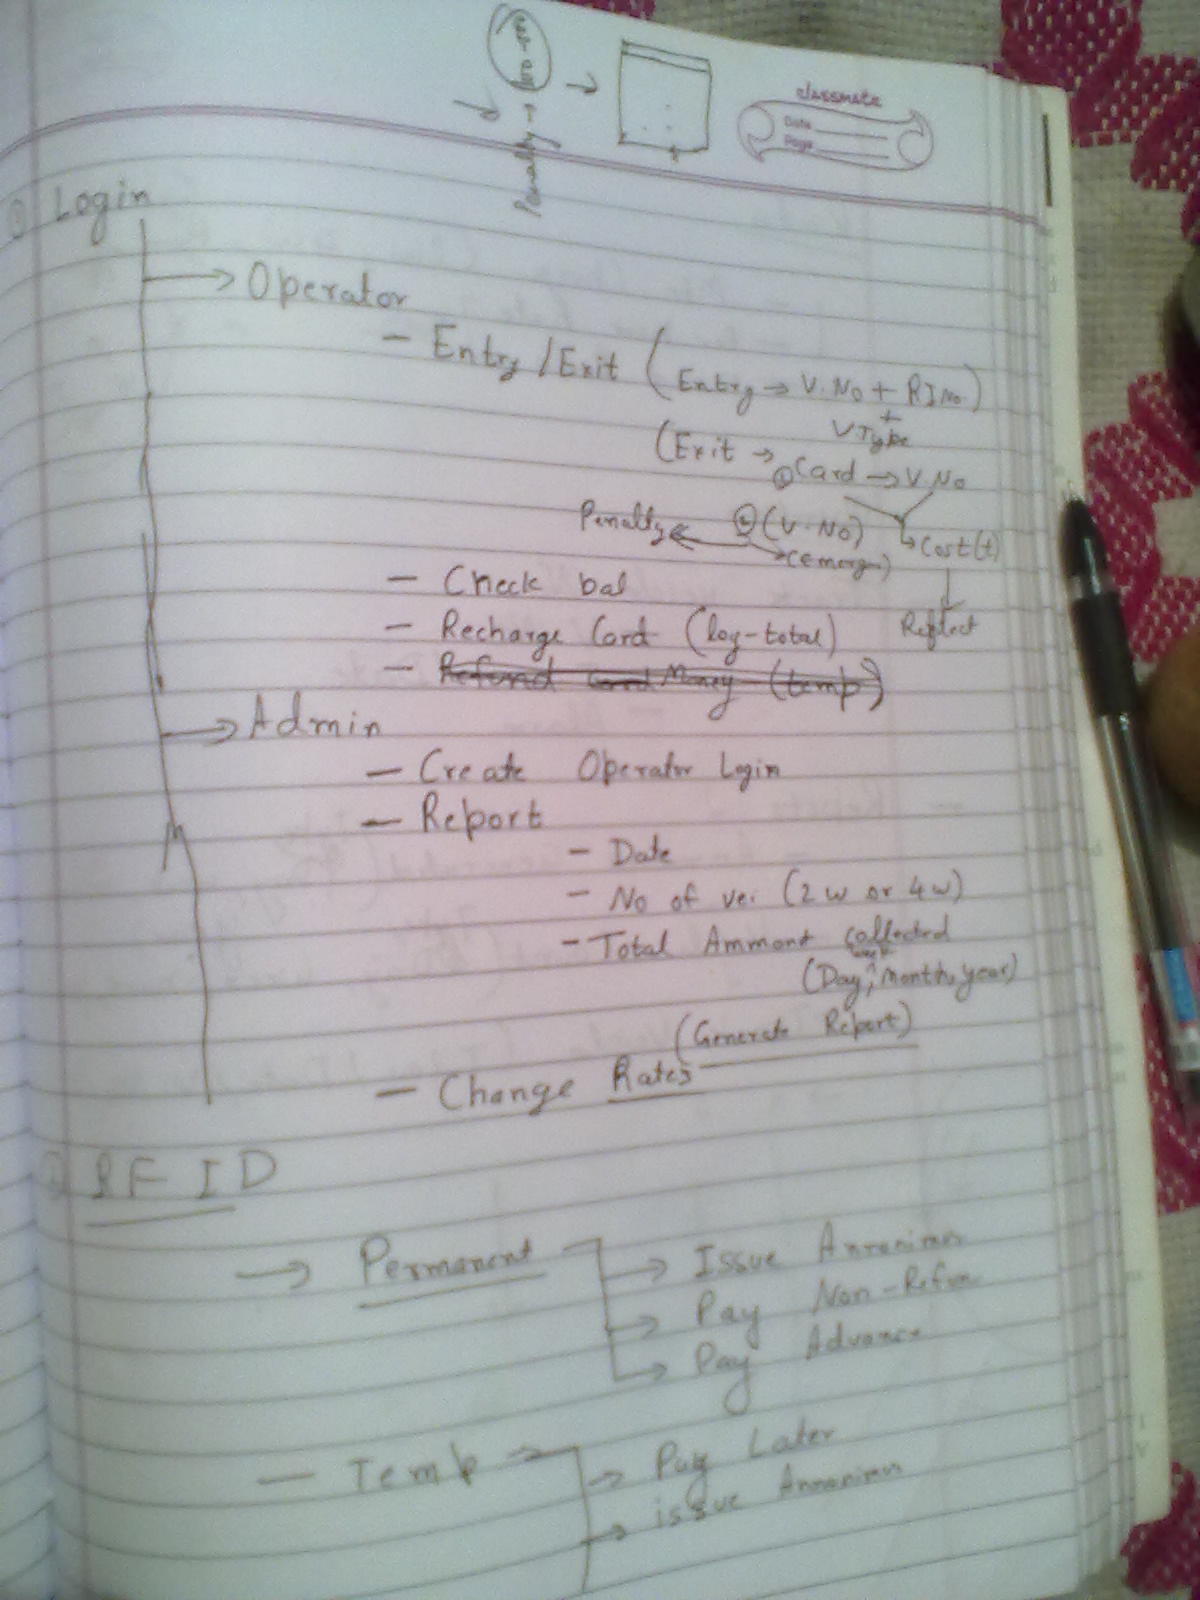 classmate
Date
Page
Penalty →
① Login
→ Operator
- Entry/Exit (Entry → V.No + RI No.)
+
V.Type
(Exit → ① Card → V.No
Penalty ← ② (V.No) → Cost(t)
(emerg)
- Check bal
- Recharge Card (log-total) Reflect
- Refund Card Money (temp)
→ Admin
- Create Operator Login
- Report
- Date
- No of vei (2w or 4w)
- Total Ammont collected
week
(Day, month, year)
(Generate Report)
- Change Rates
RFID
→ Permanent → Issue
→ Pay Non-Refun
→ Pay Advance
- Temp → → Pay Later
→ issue